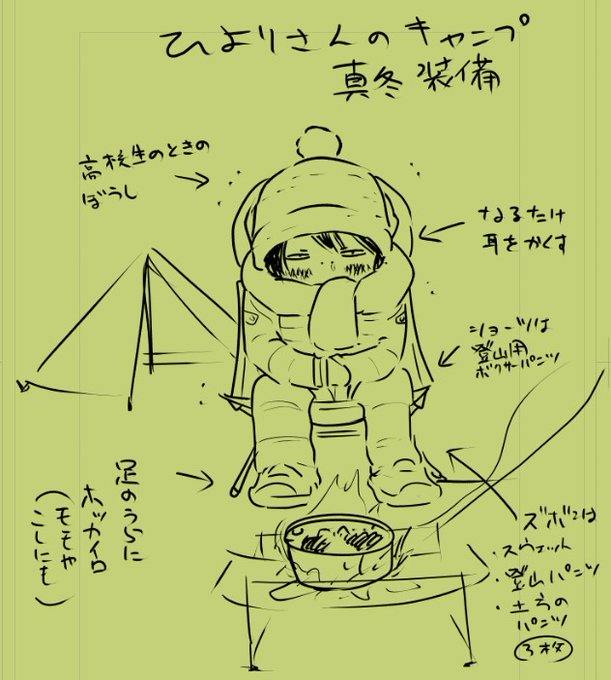 ひよりさんのキャンプ
真冬装備
高校生のときの
ぼうし
なるたけ
耳をかくす
ショーツは
登山用
ボクサーパンツ
足のうらに
ホッカイロ
(モモや
こしにも)
ズボンは
・スウェット
・登山パンツ
・土方の
パンツ
3枚